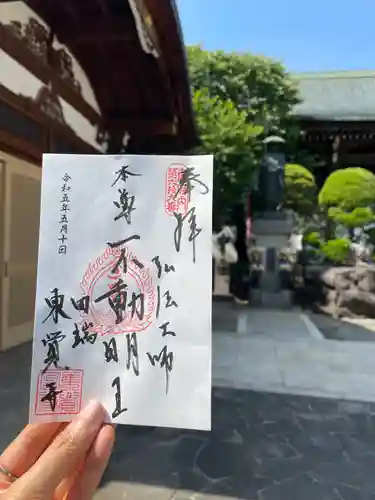 奉拝
弘法大師
本尊
不動明王
田端
東覚寺
令和五年五月十日